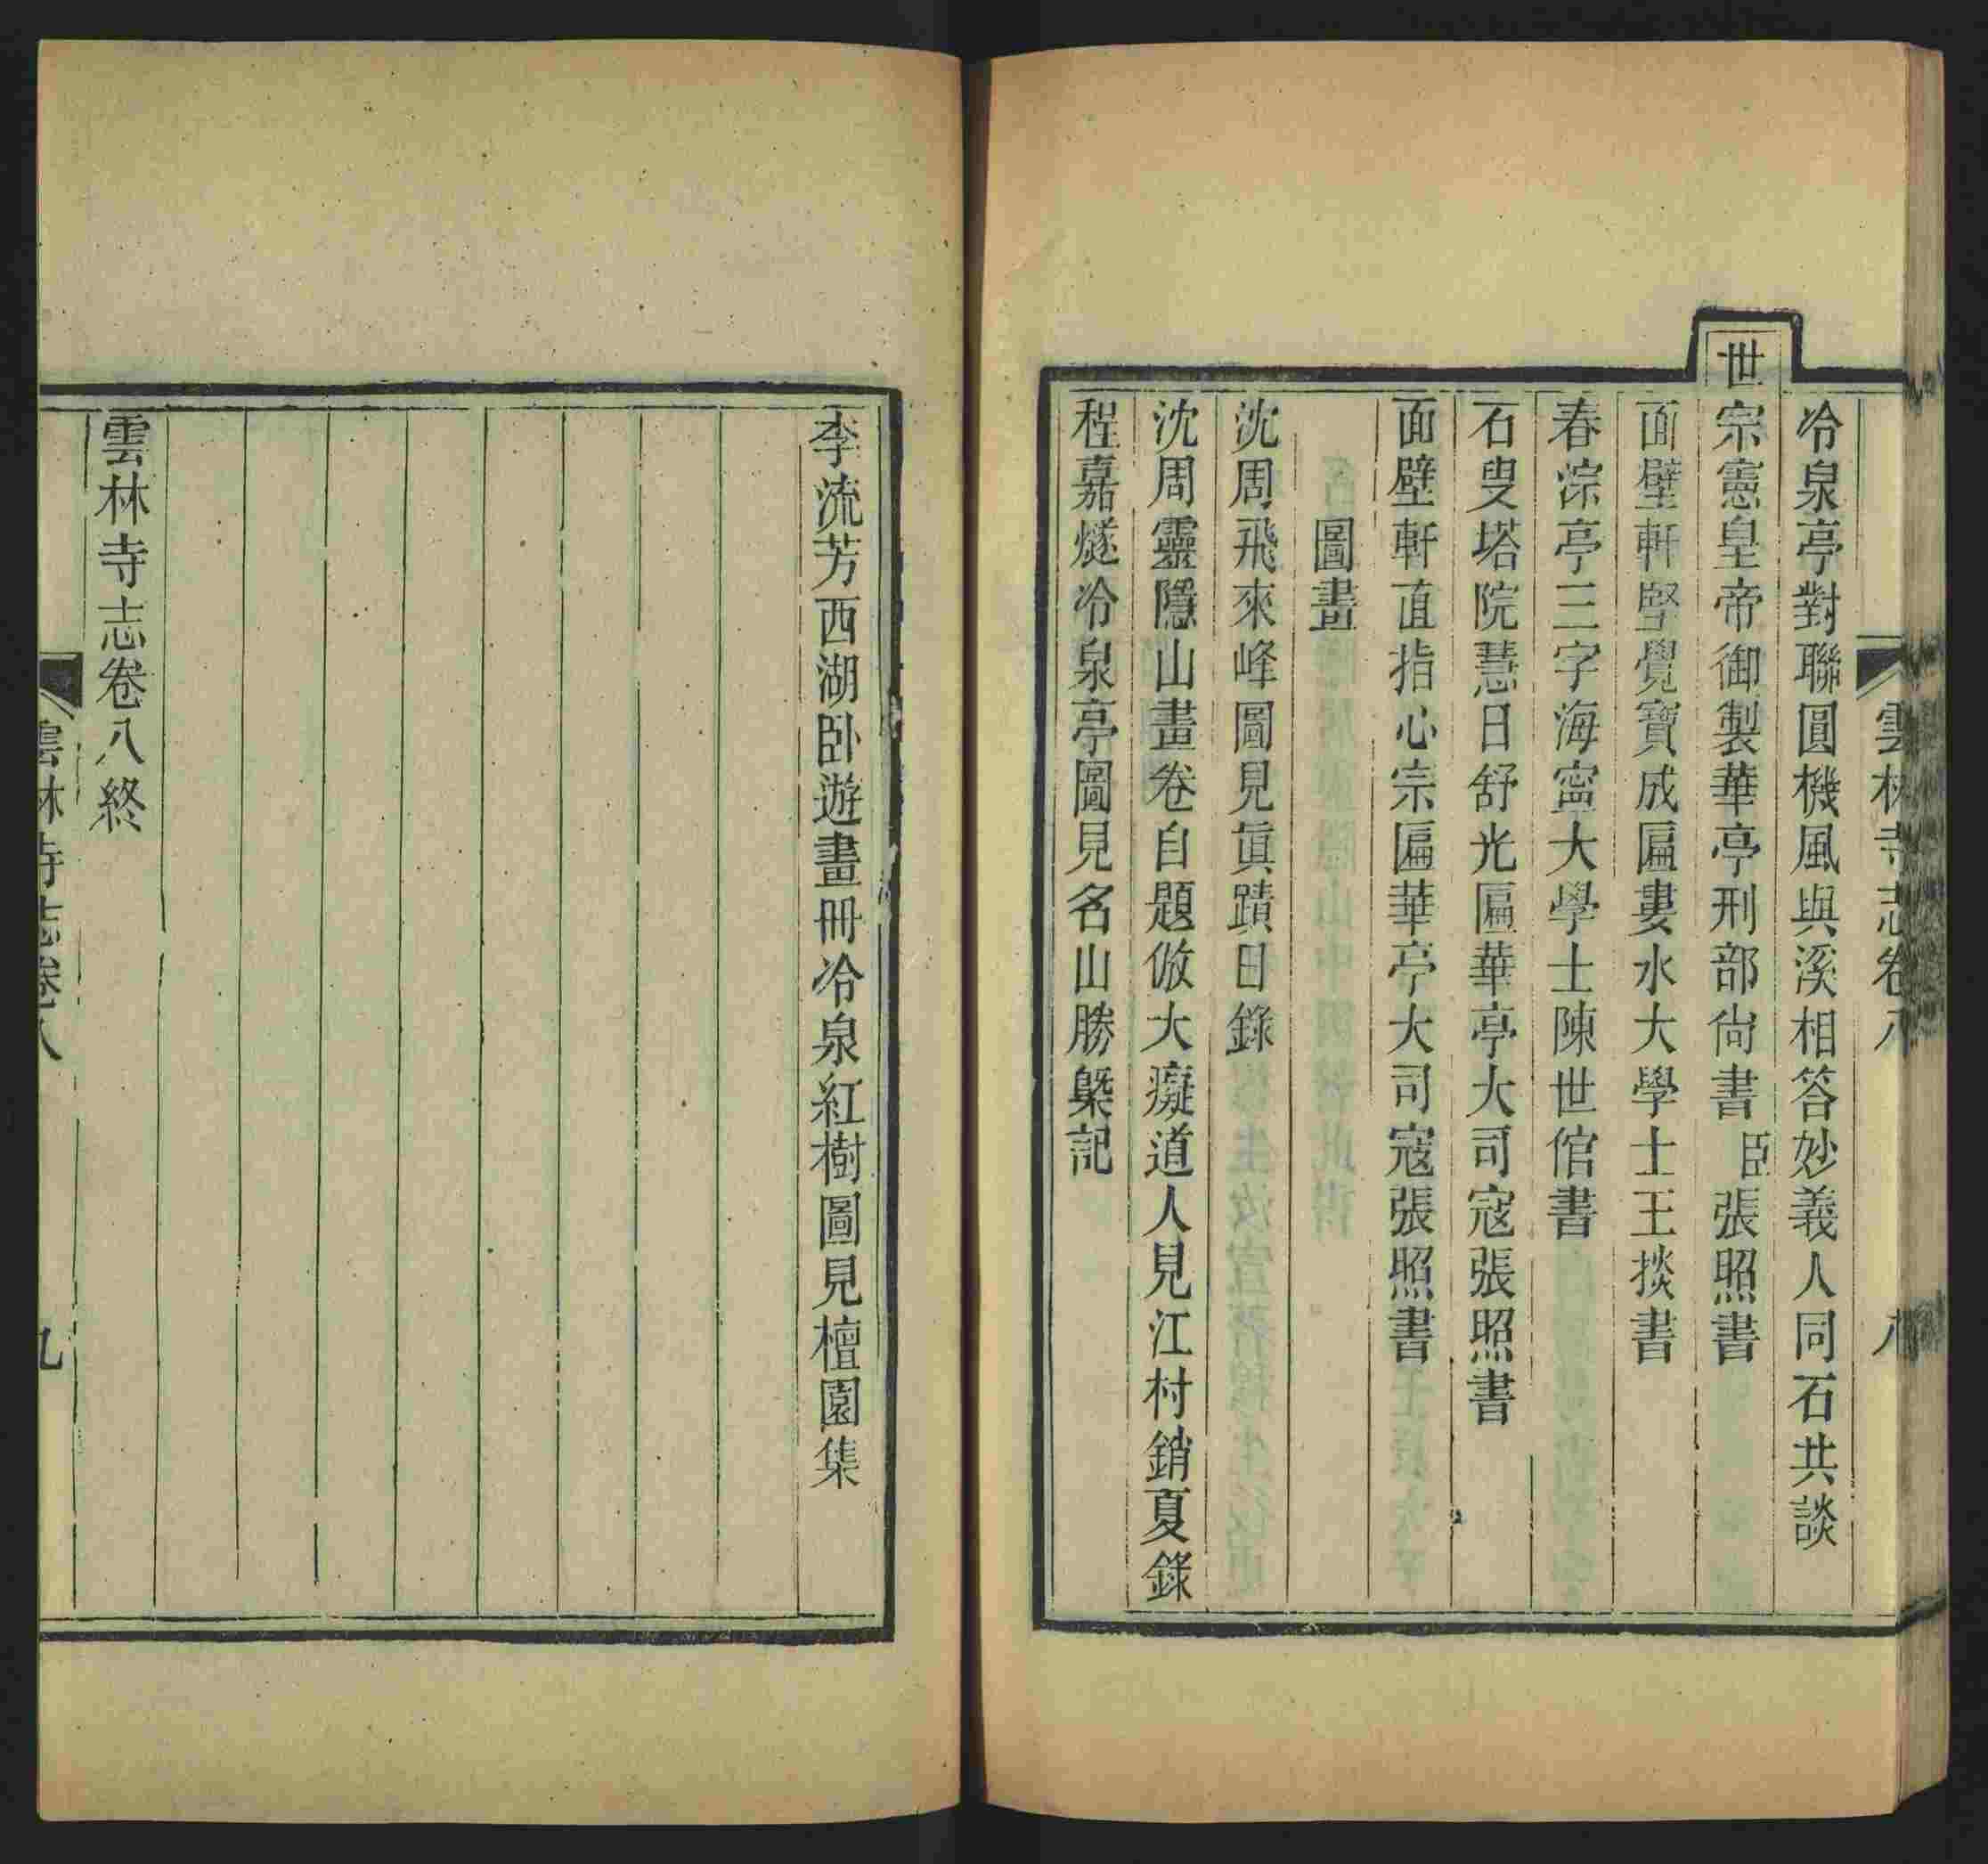 雲林寺志卷八
八
冷泉亭對聯圓機風與溪相答妙義人同石共談
世宗憲皇帝御製華亭刑部尚書臣張照書
面壁軒堅覺寶成匾婁水大學士王掞書
春淙亭三字海甯大學士陳世倌書
石叟塔院慧日舒光匾華亭大司寇張照書
面壁軒直指心宗匾華亭大司寇張照書
圖畫
沈周飛來峰圖見真蹟日錄
沈周靈隱山畫卷自題倣大癡道人見江村銷夏錄
程嘉燧冷泉亭圖見名山勝槩記
李流芳西湖卧遊畫冊冷泉紅樹圖見檀園集
雲林寺志卷八終
雲林寺志卷八
九